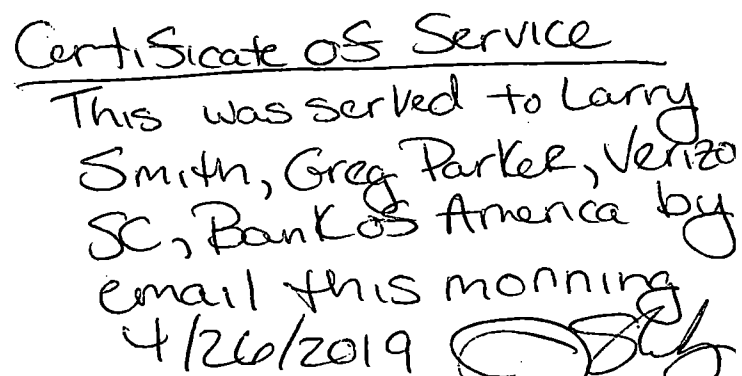 Certificate of Service
This was served to Larry
Smith, Greg Parker, Verizo
SC, Bank of America by
email this morning
4/26/2019